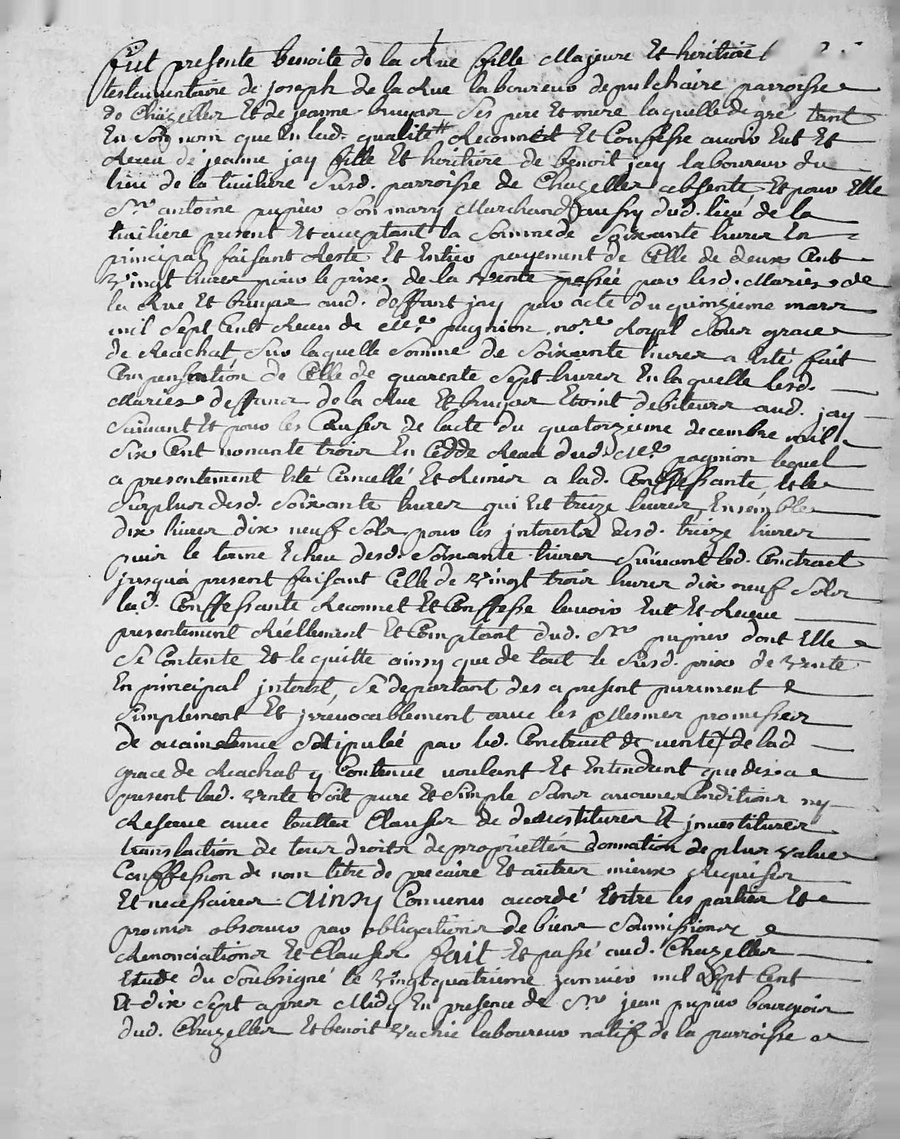 fut presente benoite de la Rue fille Majeure Et heritiere
testamentaire de joseph de la Rue laboureur de puschaire parroisse
de Chazelles Et de jeanne bruyas Ses pere et mere laquelle de gré tant
En Son nom que En lad. qualité Reconnoit Et Confesse avoir Eut Et
Receu de jeanne jay fille Et heritiere de benoit jay laboureur du
lieu de la tuiliere Susd. parroisse de Chazelles absente Et pour Elle
Sr. antoine pupier Son mary Marchand aussy dud. lieu de la
tuiliere present Et acceptant la Somme de Soixante livres En
principal faisant Reste Et Entier payement de Celle de deux Cent
Vingt livres pour le prix de la vente passée par lesd. Mariés de
la Rue Et bruyas aud. deffunt jay par acte du quinzieme mars
mil Sept Cent Receu de Me. pagnion nore. Royal Sous grace
de Reachat, Sur laquelle Somme de Soixante livres a Esté fait
Compensation de Celle de quarente Sept livres En laquelle lesd.
Mariés deffunts de la Rue Et bruyas Etoint debiteurs aud. jay
Suivant Et pour les Causes de lacte du quatorzieme decembre mil
Six Cent nonante trois En Cedde Receu dud. Me. pagnion lequel
a presentement Esté Cancellé Et Remis a lad. Confessante, Et le
Surplus desd. Soixante livres qui Est treize livres, Ensemble
dix livres dix neuf Sols pour les interests desd. treize livres
puis le terme Echeu desd. Soixante livres Suivant led. Contract
jusqua present faisant Celle de vingt trois livres dix neuf Sols
lad. Conffessante Reconnet Et Conffesse lavoir Eut Et Receue
presentement Réellement Et Comptant dud. Sr. pupier dont Elle
Se Contente Et le quitte ainsy que de tout le Susd. prix de vente
En principal interest, Se departant des a present purement &
Simplement Et jrrevocablement avec les Mesmes promesses
de maintenue Stipulée par led. Contract de vente de lad
grace de Reachat y Contenue voulant Et Entendant que des a
present lad. vente Soit pure Et Simple Sans aucunes Conditions ny
Reserve avec touttes Clauses de devestitures Et jnvestitures
translation de tous droits de proprietés donnation de plus value
Confession de nom titre de precaire Et autres mieux Requises
Et necessaires Ainsy Convenu accordé Entre les parties Et
promis observer par obligations de biens Soumissions &
Renonciations Et Clauses fait Et passé aud. Chazelles
Etude du Soubsigné le vingt quatrieme janvier mil Sept Cent
Et dix Sept apres Midy En presence de Sr. jean pupier bourgois
dud. Chazelles Et benoit vachie laboureur natif de la parroisse